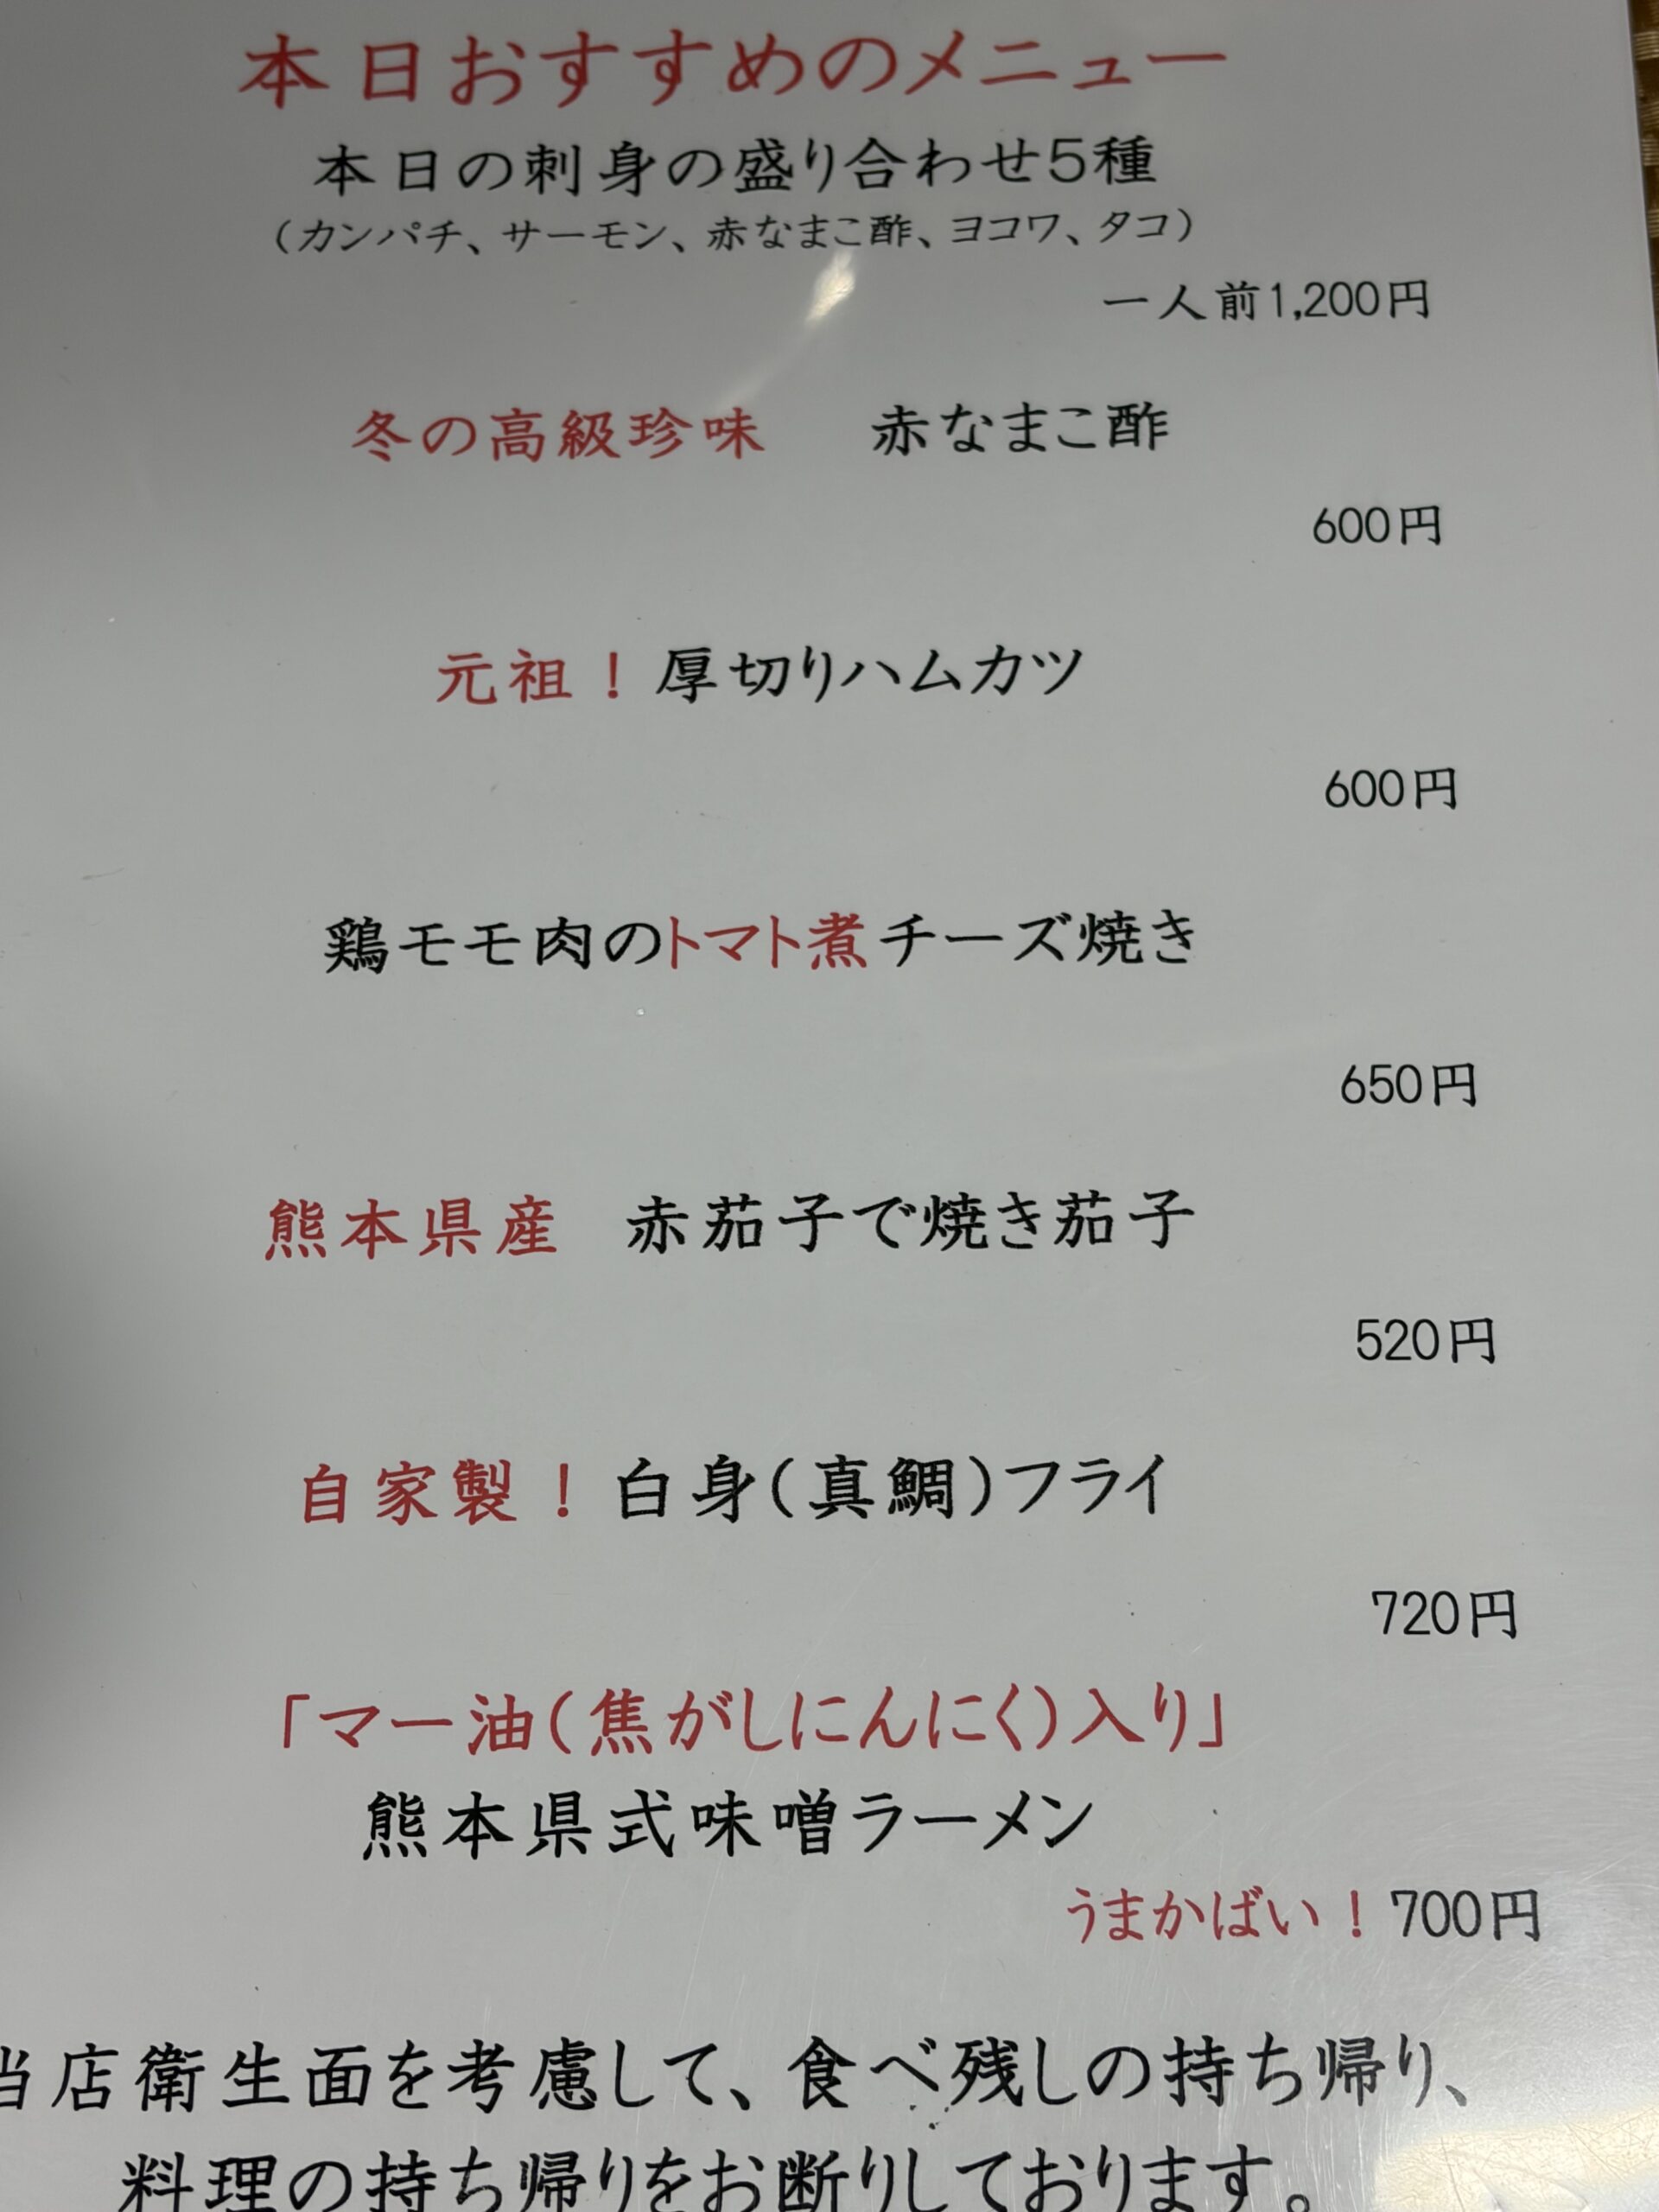 本日おすすめのメニュー
本日の刺身の盛り合わせ5種
(カンパチ、サーモン、赤なまこ酢、ヨコワ、タコ)
一人前1,200円
冬の高級珍味 赤なまこ酢
600円
元祖!厚切りハムカツ
600円
鶏モモ肉のトマト煮チーズ焼き
650円
熊本県産 赤茄子で焼き茄子
520円
自家製!白身(真鯛)フライ
720円
「マー油(焦がしにんにく)入り」
熊本県式味噌ラーメン
うまかばい!700円
当店衛生面を考慮して、食べ残しの持ち帰り、
料理の持ち帰りをお断りしております。